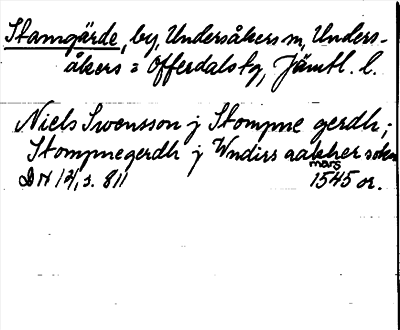 Stamgärde, by, Undersåkers sn, Unders-
åkers o Offerdals tg, Jämtl. l.
Niels Swensson j Stompne gerdh;
Stompnegerdh j Wndirs aakher soken
mars
DN 14, s. 811 1545 or.